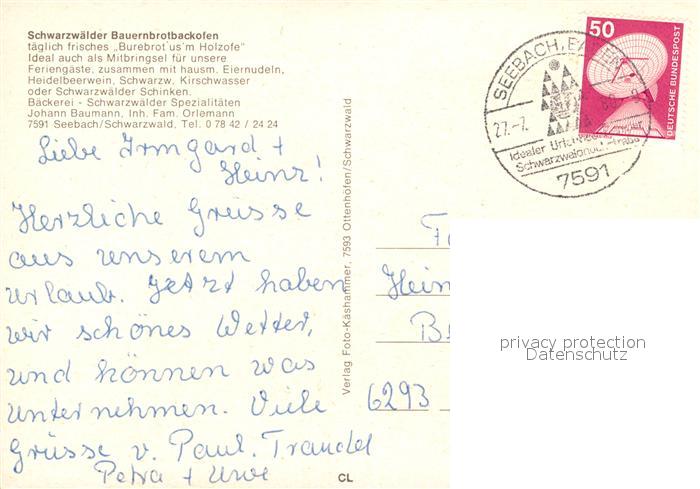 Schwarzwälder Bauernbrotbackofen
täglich frisches „Burebrot'us'm Holzofe"
Ideal auch als Mitbringsel für unsere
Feriengäste, zusammen mit hausm. Eiernudeln,
Heidelbeerwein, Schwarzw. Kirschwasser
oder Schwarzwälder Schinken.
Bäckerei - Schwarzwälder Spezialitäten
Johann Baumann, Inh. Fam. Orlemann
7591 Seebach/Schwarzwald, Tel. 0 78 42 / 24 24
Liebe Irmgard +
Heinz!
Herzliche Grüsse
aus unserem
Urlaub. Jetzt haben
wir schönes Wetter,
und können was
unternehmen. Viele
Grüsse v. Paul, Traudel
Petra + Uwe
Verlag Foto-Käshammer, 7593 Ottenhöfen/Schwarzwald
CL
SEEBACH,
27.-7.
Idealer
7591
50
DEUTSCHE BUNDESPOST
Hein
6293
privacy protection
Datenschutz